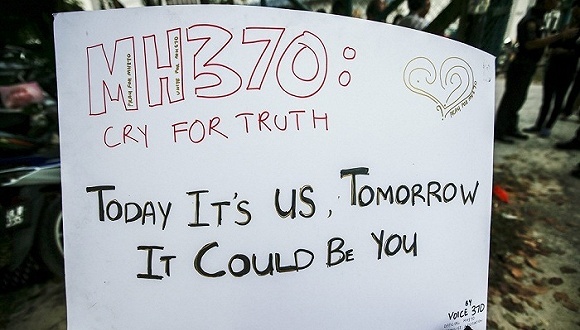 MH370:
PRAY FOR MH370
UNITE FOR MH370
PRAY FOR MH370
CRY FOR TRUTH
TODAY IT'S US, TOMORROW
IT COULD BE YOU
BY
VOICE 370